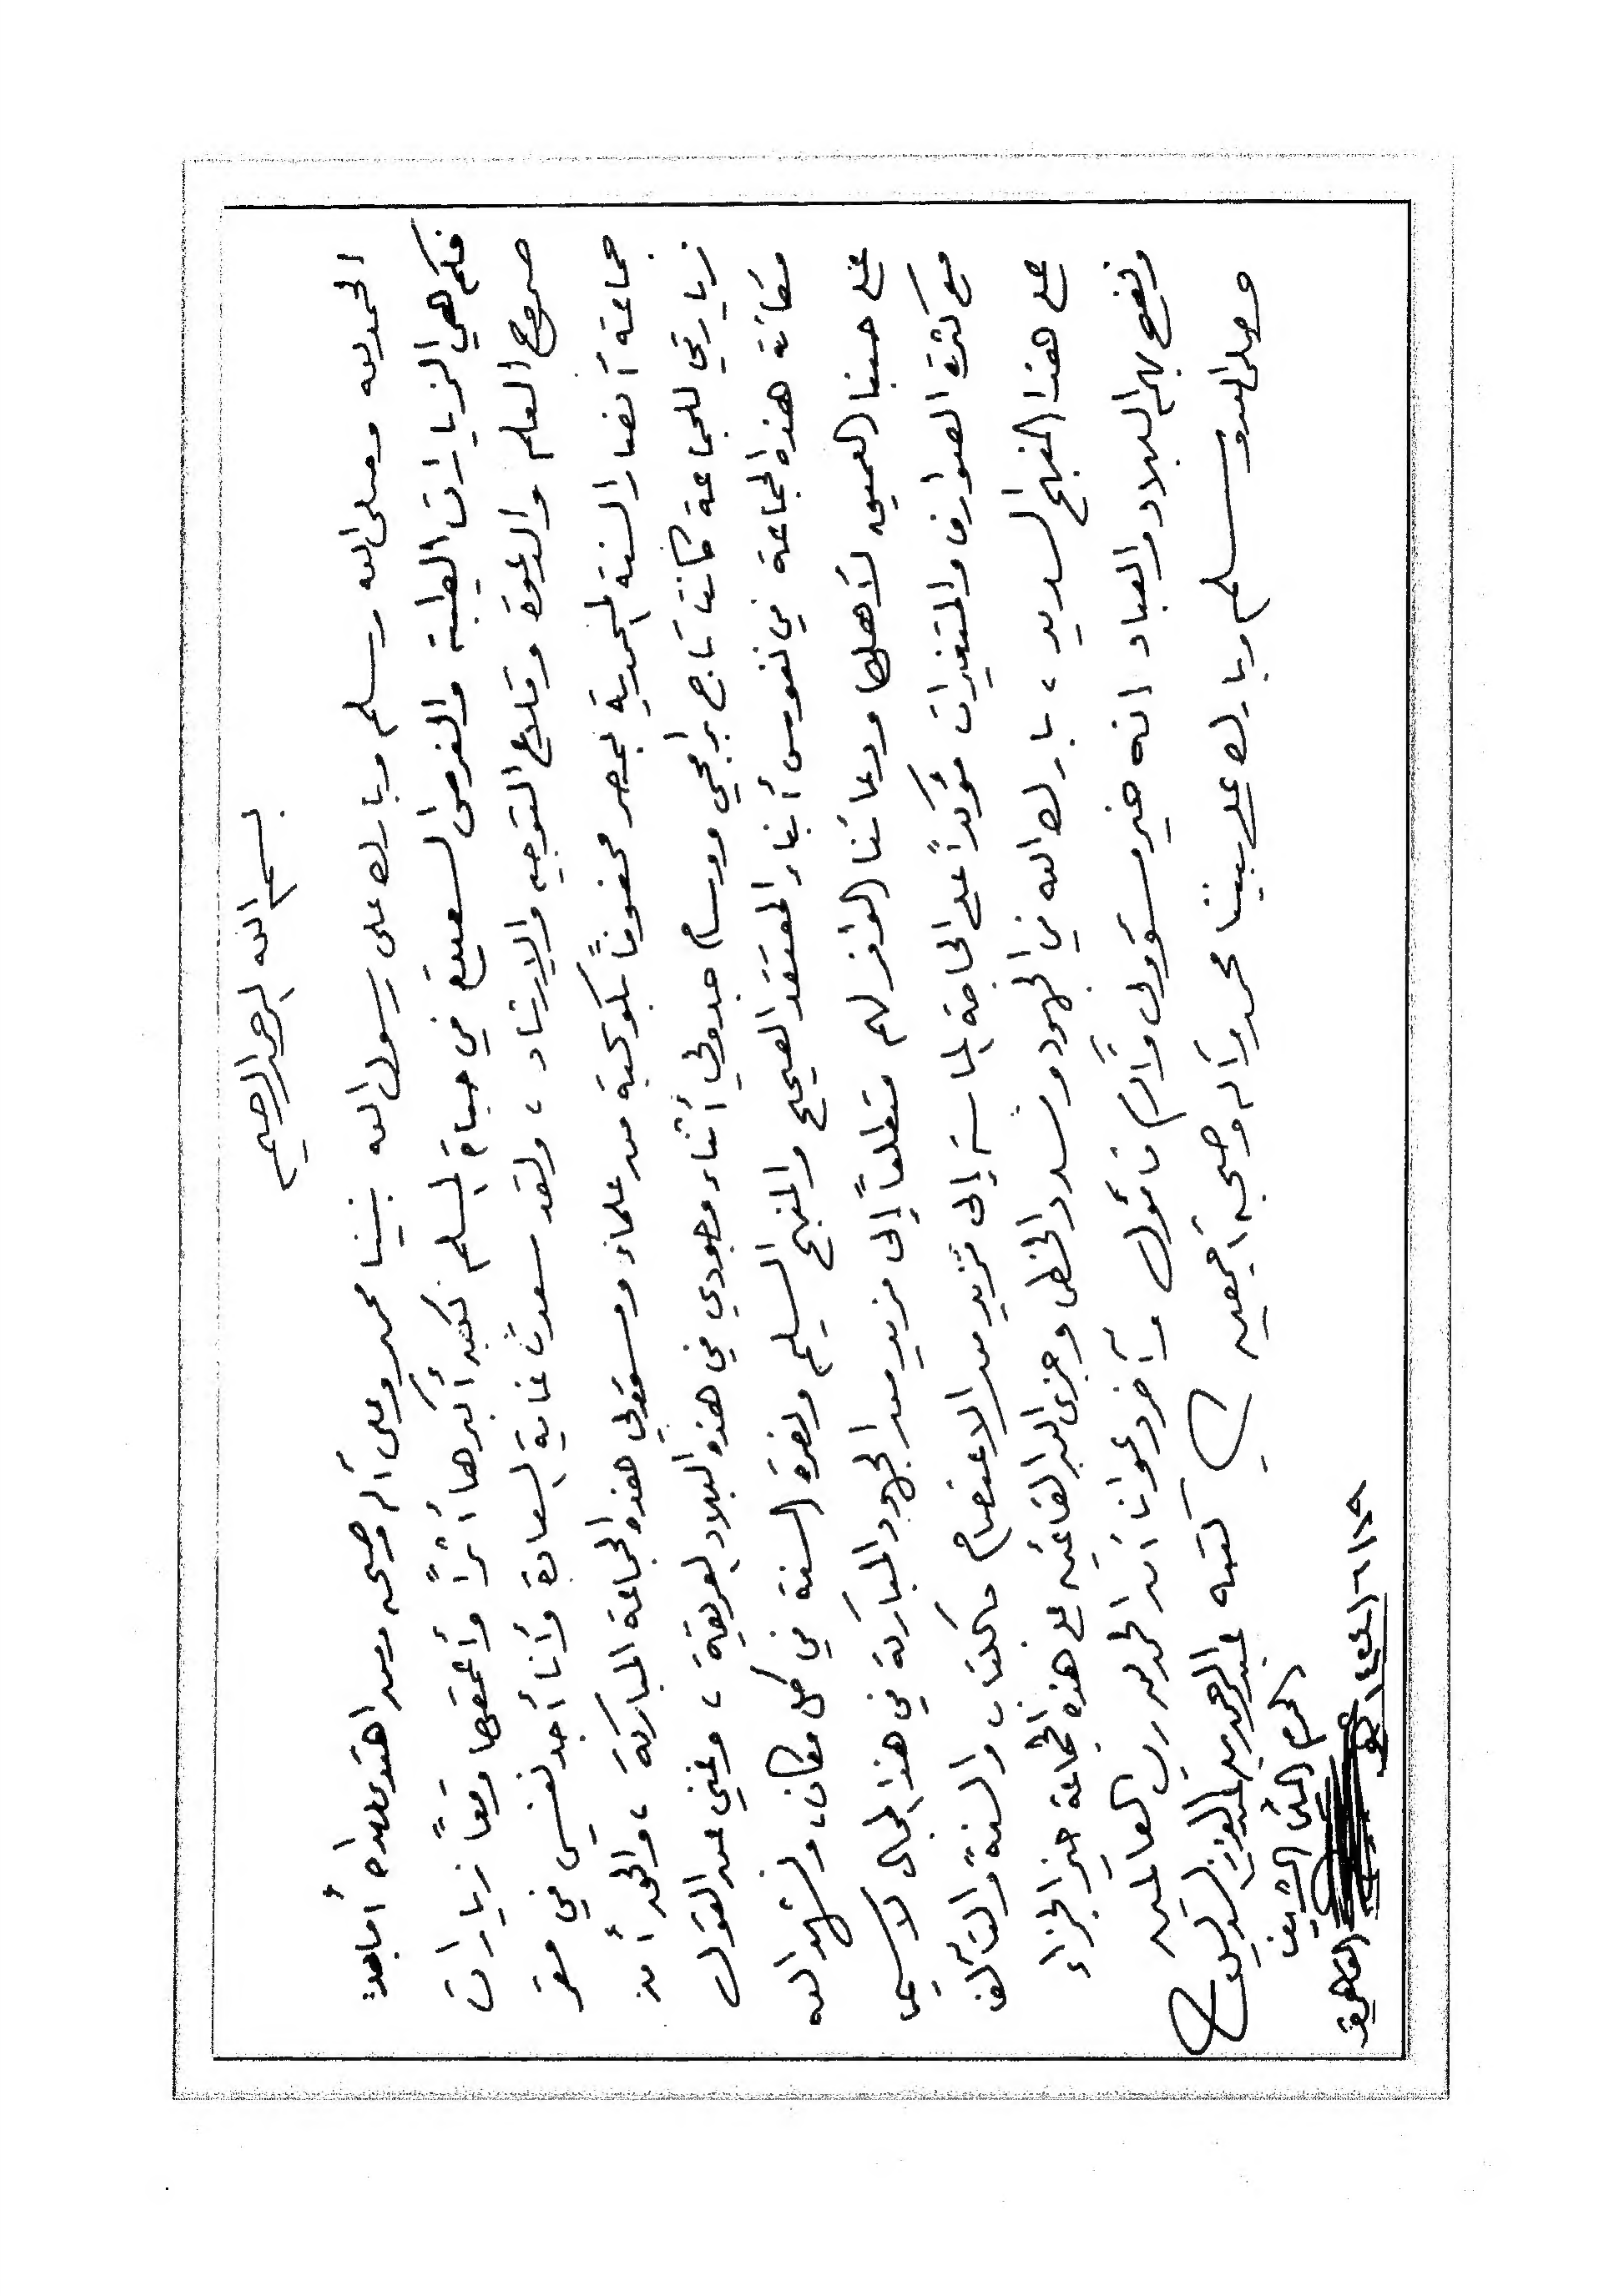 بسم الله الرحمن الرحيم
الحمد لله وصلى الله وسلم وبارك على رسول الله نبينا محمد وعلى آله وصحبه ومن اهتدى بهداه أما بعد:
فكم هي الزيارات الطيبة والفرص السعيدة في حياة المسلم لكن أكبرها أثراً وأعمقها وقعاً زيارات
صروح العلم والدعوة وقلاع التوجيه والإرشاد، ولقد سعدت غاية السعادة وأنا أجد نفسي في مقر
جماعة أنصار السنة المحمدية بمصر محفوفاً بكوكبة من علماء ومسؤولي هذه الجماعة المباركة، والحق أن
زيارتي للجماعة كانت تاج برامجي ووسام جدولي أثناء وجودي في هذه البلاد العريقة، وغني عن القول
مكانة هذه الجماعة في نفوس أبناء المعتقد الصحيح والمنهج السليم ونصرة السنة في كل مكان، ونشهد الله
على حبنا العميق لأهلها ودعائنا الوافر لهم متطلعاً إلى مزيد من الجهود المباركة في هذا المجال لا سيما
مع كثرة الصوارف والمتغيرات مؤكداً على الحاجة الماسة إلى مزيد من الاعتصام بالكتاب والسنة والتآلف
على هذا المنهج السديد، بارك الله في الجهود وسدد الخطى وجزى الله القائمين على هذه الجماعة خير الجزاء
ونفع بهم البلاد والعباد انه خير مسؤول وأكرم مأمول وآخر دعوانا أن الحمد لله رب العالمين
وصلى الله وسلم وبارك على نبينا محمد وآله وصحبه أجمعين
كتبه عبدالرحمن بن عبدالعزيز السديس
الحرم المكي الشريف
القاهرة